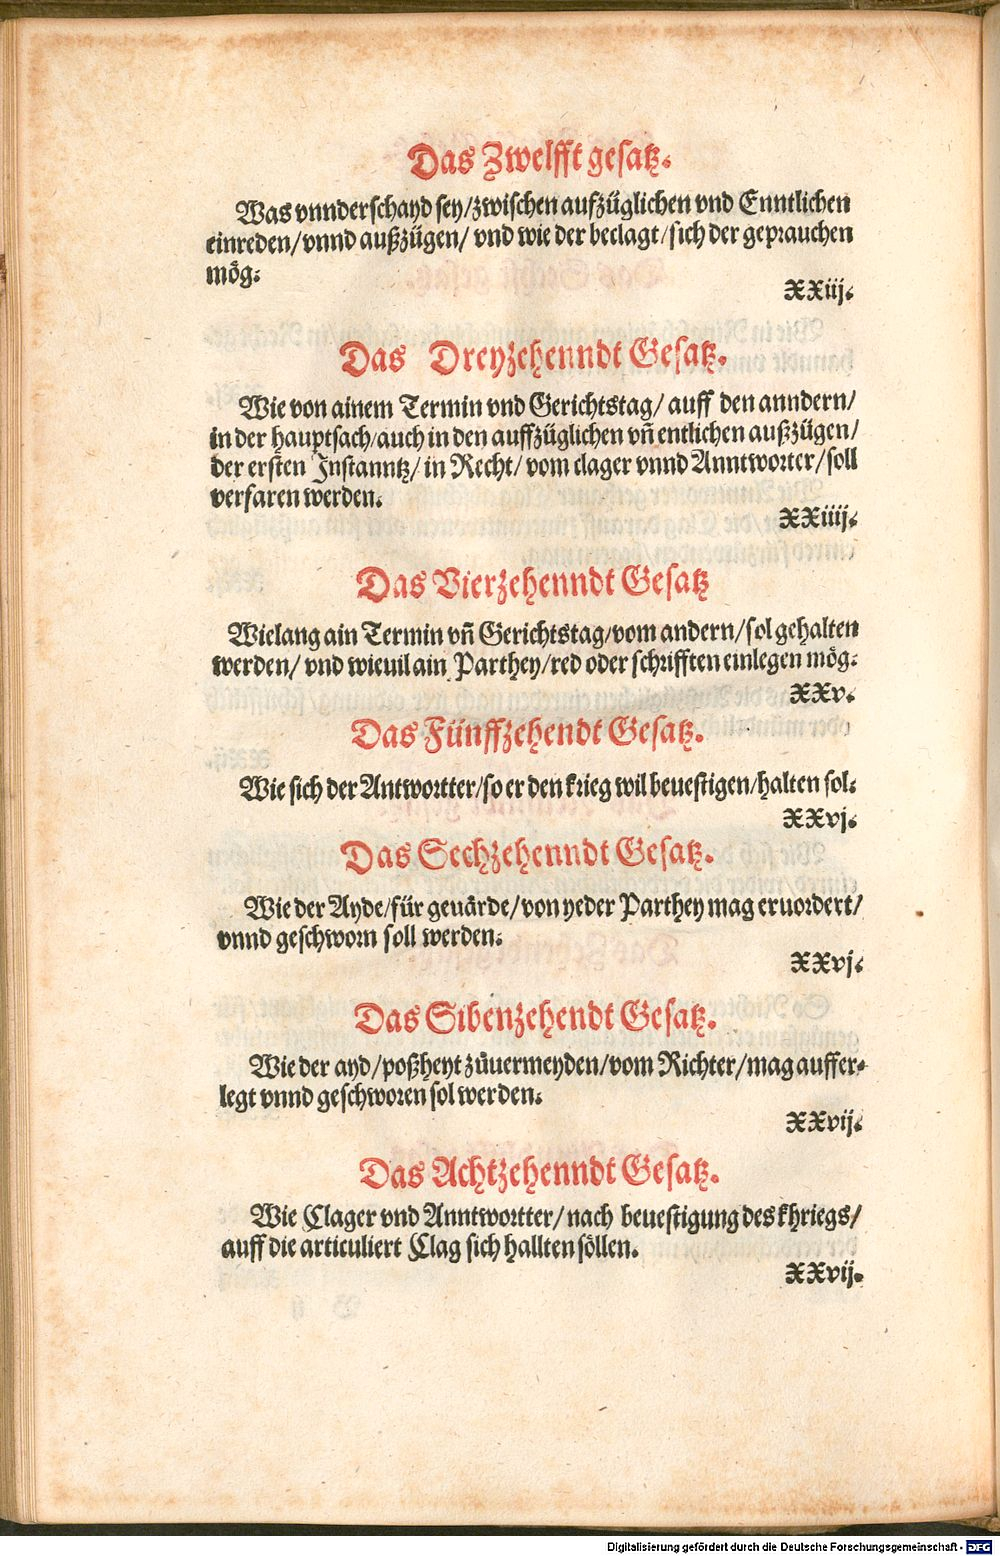 Das Zwelfft gesatz.
Was vnnderschayd sey/zwischen aufzüglichen vnd Enntlichen
einreden/vnnd außzügen/ vnd wie der beclagt/sich der geprauchen
mög.
XXiij.
Das Dreyzehenndt Gesatz.
Wie von ainem Termin vnd Gerichtstag/ auff den anndern/
in der hauptsach/auch in den auffzüglichen vñ entlichen außzügen/
der ersten Instanntz/ in Recht/ vom clager vnnd Anntworter/soll
verfaren werden.
XXiiij.
Das Vierzehenndt Gesatz
Wielang ain Termin vñ Gerichtstag/vom andern/sol gehalten
werden/ vnd wieuil ain Parthey/red oder schrifften einlegen mög.
XXv.
Das Fünffzehendt Gesatz.
Wie sich der Antwortter/so er den krieg wil beuestigen/halten sol.
XXvj.
Das Sechzehenndt Gesatz.
Wie der Ayde/für geuärde/von yeder Parthey mag eruordert/
vnnd geschworn soll werden.
XXvj.
Das Sibenzehendt Gesatz.
Wie der ayd/poßheyt zůuermeyden/vom Richter/mag auffer-
legt vnnd geschworen sol werden.
XXvij.
Das Achtzehenndt Gesatz.
Wie Clager vnd Anntwortter/ nach beuestigung des khriegs/
auff die articuliert Clag sich hallten söllen.
XXvij.
Digitalisierung gefördert durch die Deutsche Forschungsgemeinschaft - DFG